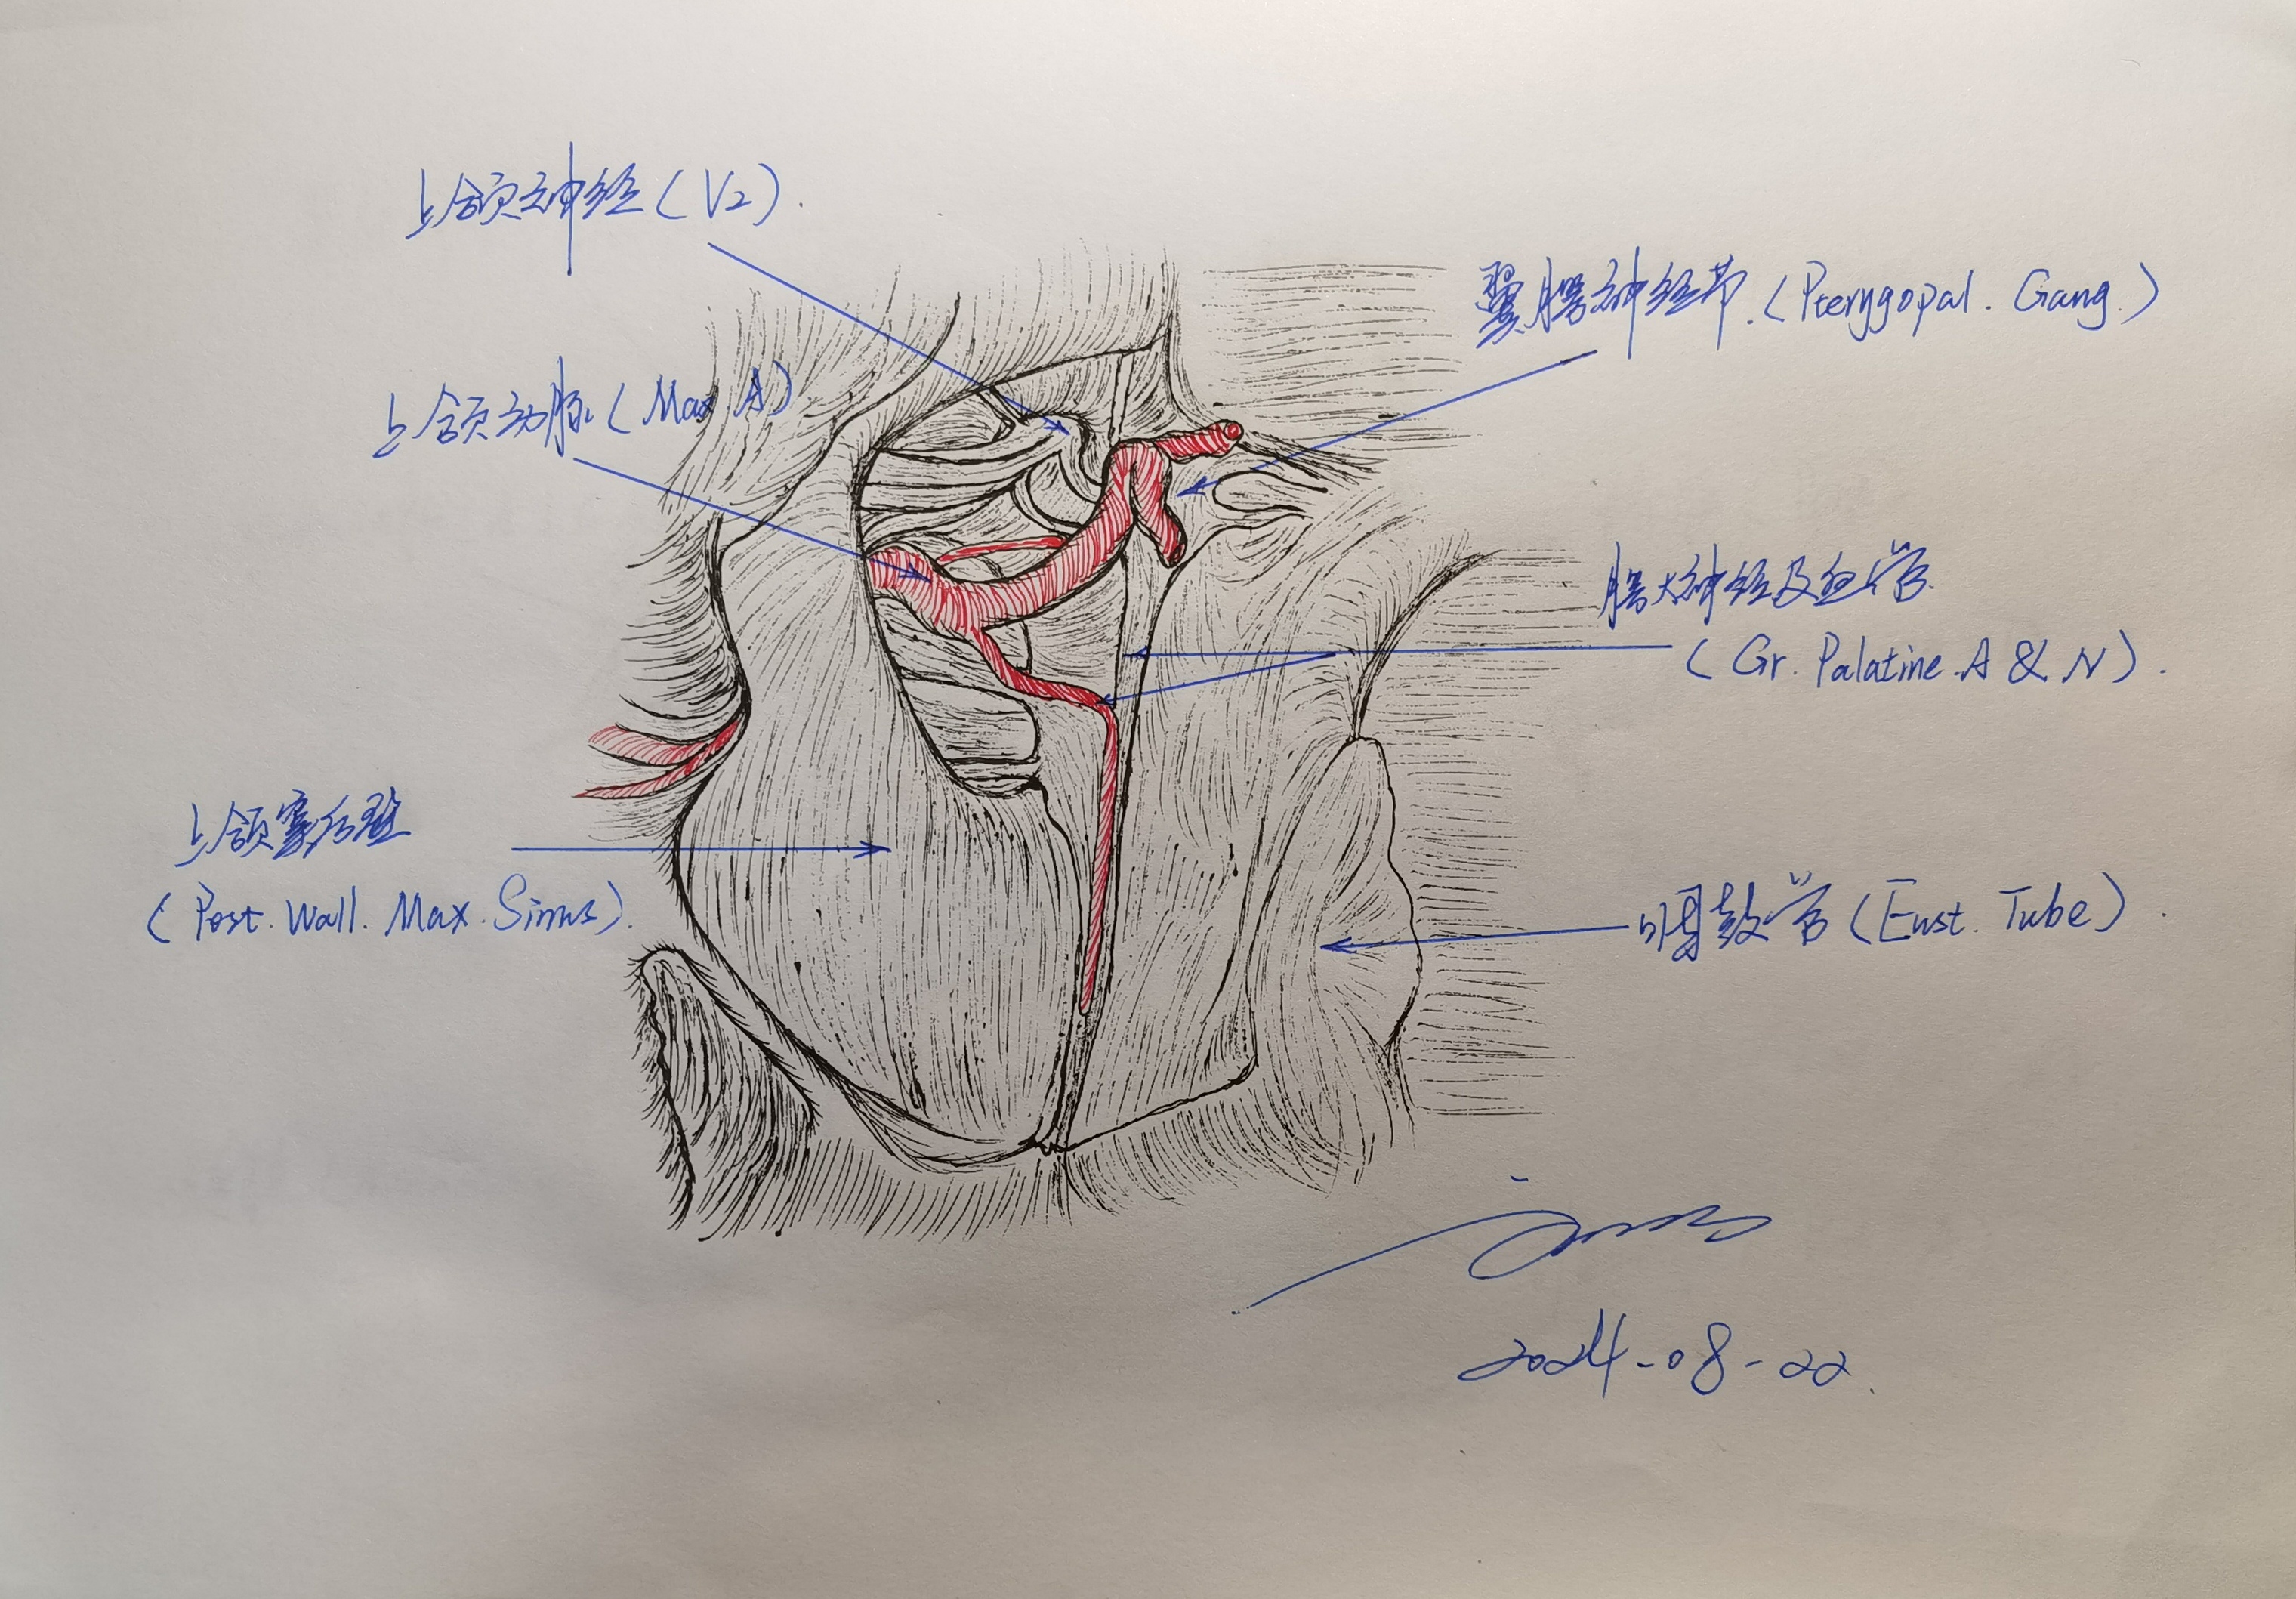 上颌神经(V2).
翼腭神经节.(Pterygopal. Gang.)
上颌动脉(Max A)
腭大神经及血管
(Gr. Palatine. A & N).
上颌窦后壁
(Post. Wall. Max. Sinus).
咽鼓管(Eust. Tube).
2024-08-22.